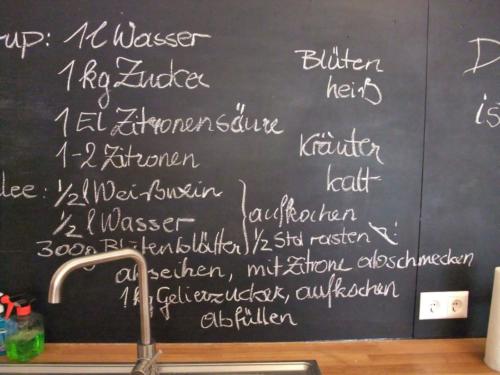 rup: 1l Wasser
1 kg Zucker
1 El Zitronensäure
1-2 Zitronen
Blüten
heiß
Kräuter
kalt
lee: 1/2 l Weißwein
1/2 l Wasser
300g Blütenblätter
aufkochen
1/2 Std rasten
abseihen, mit Zitrone abschmecken
1 kg Gelierzucker, aufkochen
abfüllen
D
is